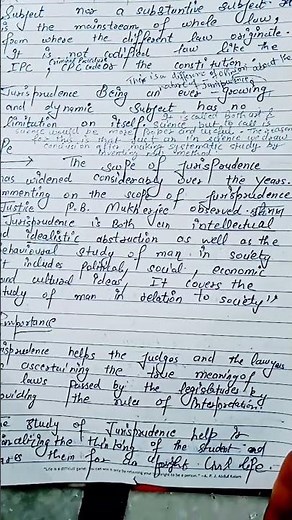 Subject nor a substantive subject.
is the mainstream of whole law,
from where the different law originate.
It is not codified law like the
IPC, CPC or the constitution.
Jurisprudence Being an ever growing
and dynamic subject has no
limitation on itself
It is called both art &
science but to call it a
science would be more proper and useful. The reason
for this is that just as in science we draw
conclusion after making systematic study by
inventing new method.
→ The scope of Jurisprudence
has widened considerably over the years.
Commenting on the scope of jurisprudence
Justice P.B. Mukherjee observed.
"Jurisprudence is both an intellectual
and idealistic abstraction as well as the
behavioural study of man in society
It includes political, social, economic
and cultural ideas, It covers the
study of man in relation to society"
Importance
Jurisprudence helps the Judges and the lawyers
in ascertaining the true meaning of
laws passed by the legislatures by
providing the rules of Interpretation.
The study of Jurisprudence help in
the thinking of the student and
them for an upright Civil life.
"Life is a difficult game. You can win it only by retaining your birthright to be a person." - A. P. J. Abdul Kalam